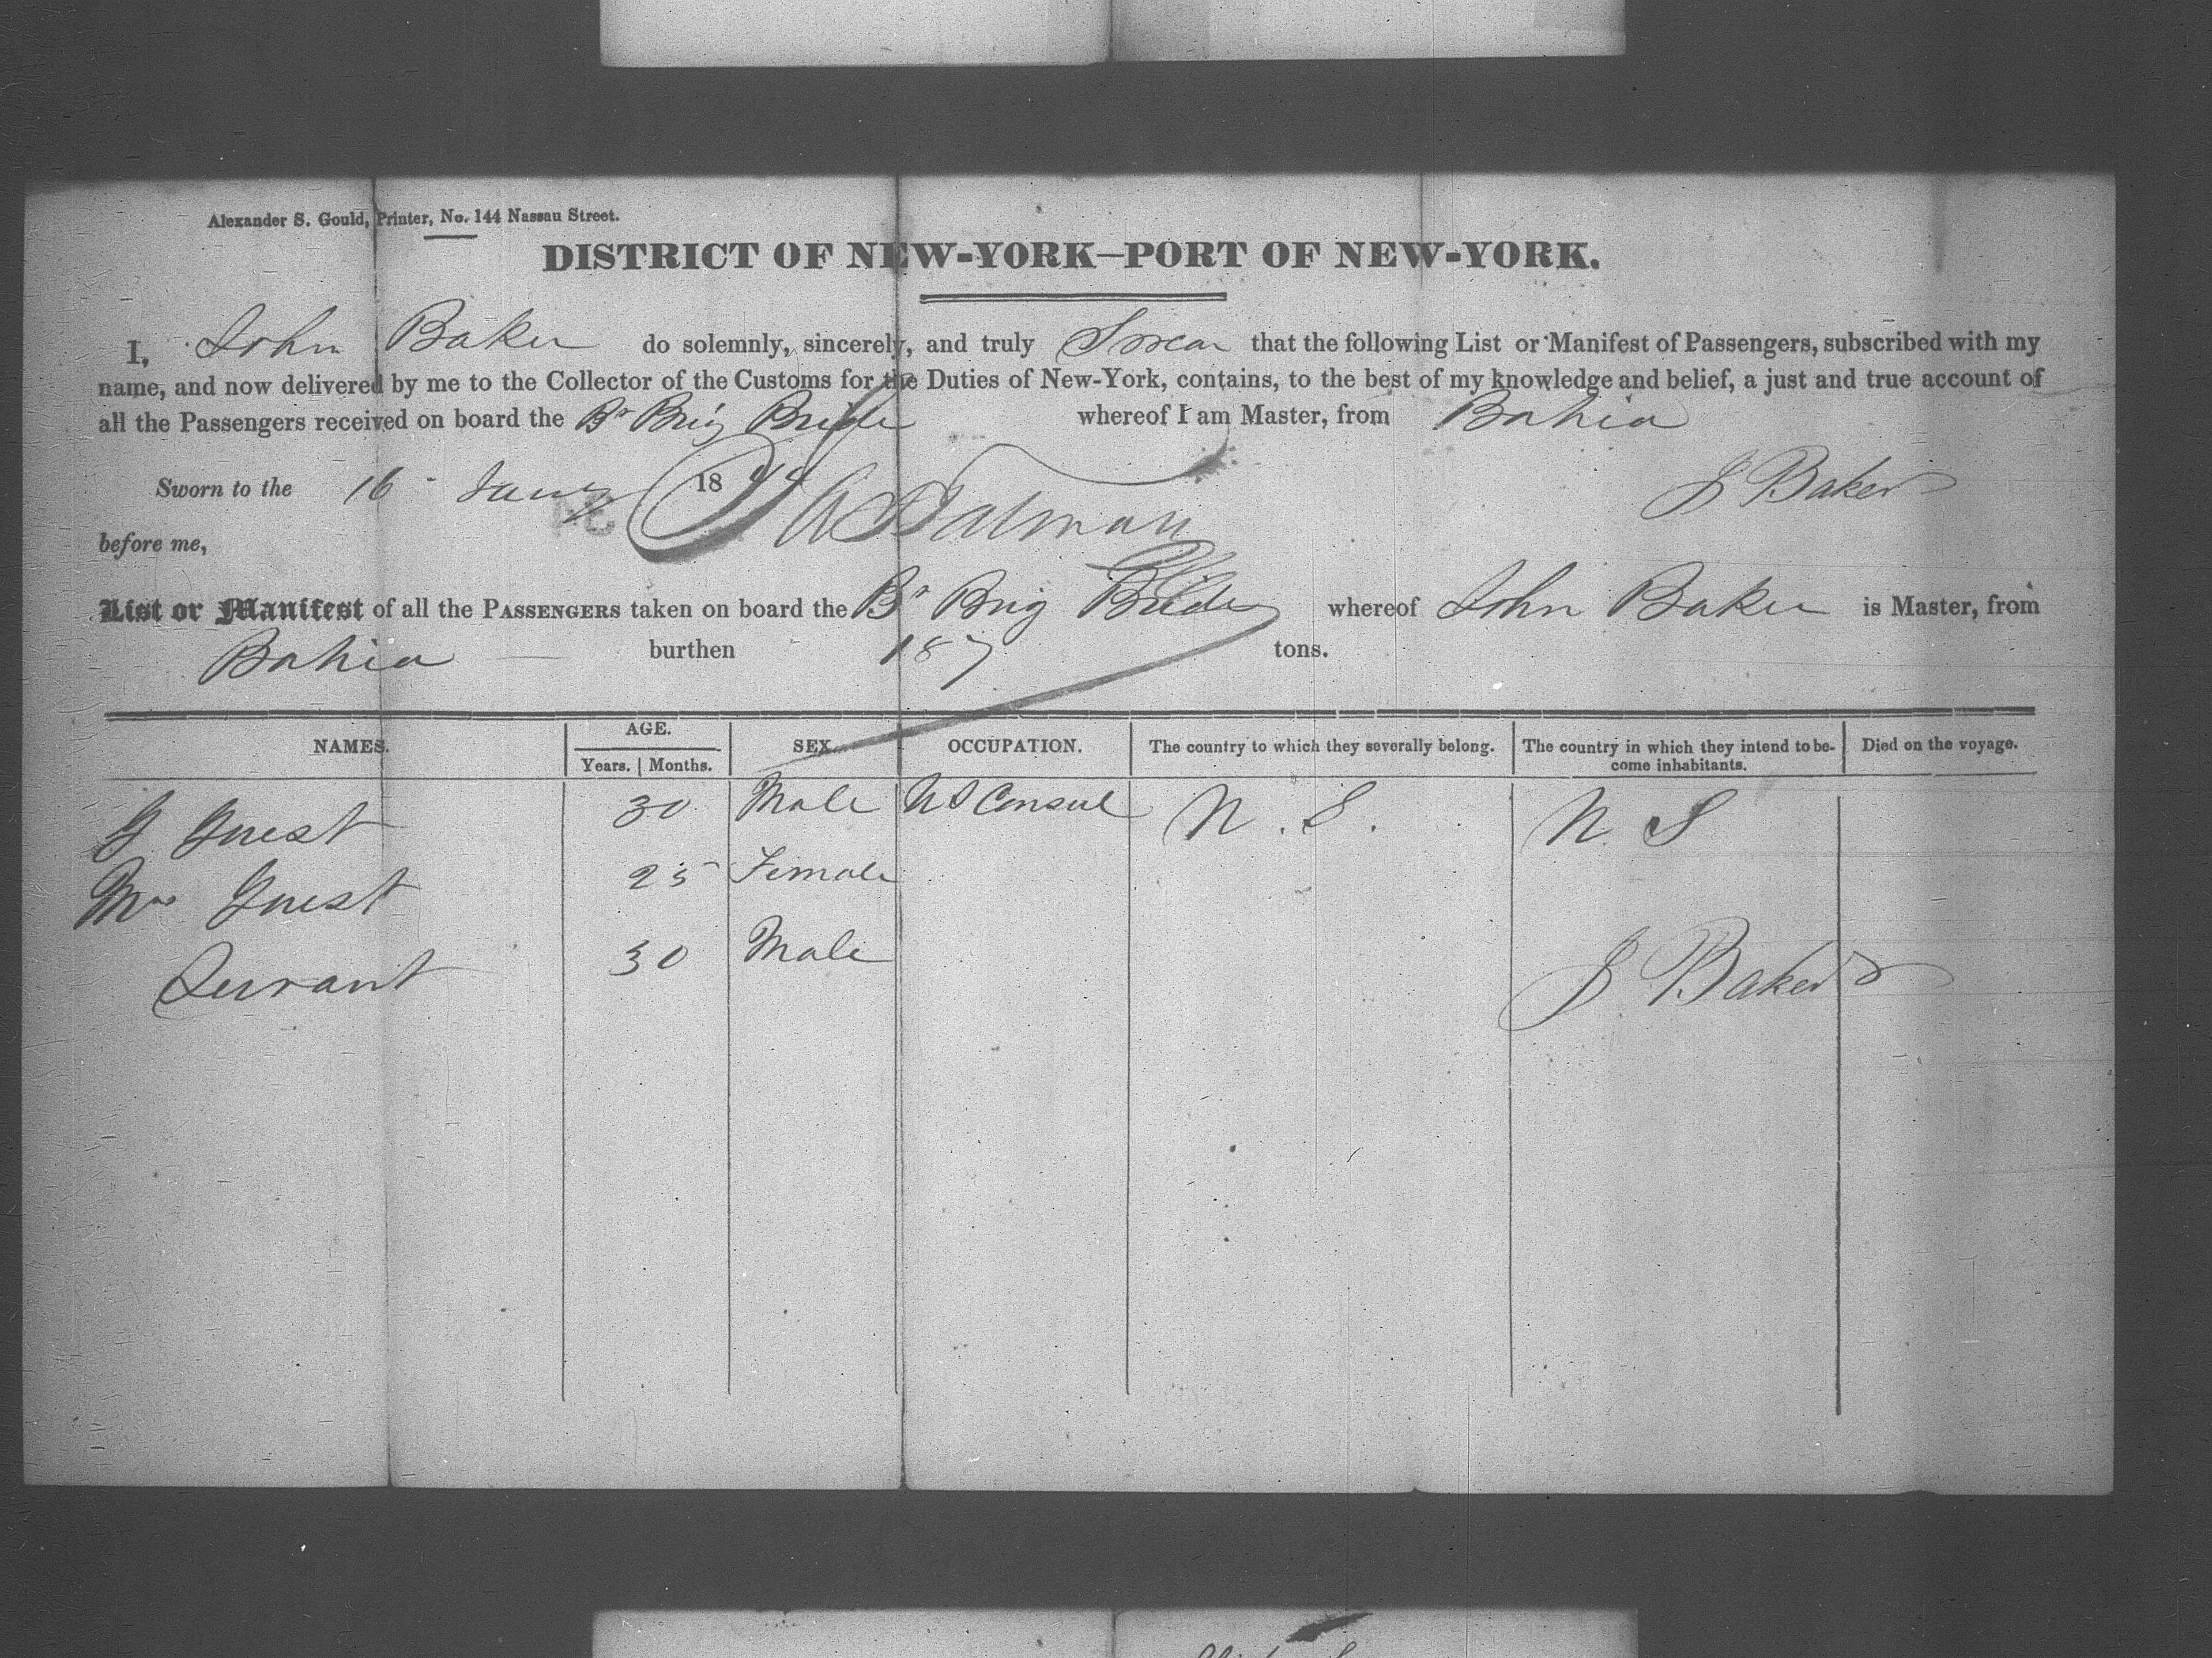 Alexander S. Gould, Printer, No. 144 Nassau Street.
DISTRICT OF NEW-YORK—PORT OF NEW-YORK.
I, John Baker do solemnly, sincerely, and truly Swear that the following List or Manifest of Passengers, subscribed with my
name, and now delivered by me to the Collector of the Customs for the Duties of New-York, contains, to the best of my knowledge and belief, a just and true account of
all the Passengers received on board the Br Brig Bride whereof I am Master, from Bahia
Sworn to the 16 Jany 1844 J Baker
before me,
List or Manifest of all the PASSENGERS taken on board the Br Brig Bride whereof John Baker is Master, from
Bahia burthen 187 tons.
NAMES. AGE. SEX. OCCUPATION. The country to which they severally belong. The country in which they intend to be- Died on the voyage.
Years. Months. come inhabitants.
G Guest 30 Male US Consul U. S. U. S
Mrs Guest 25 Female
Servant 30 Male J Baker